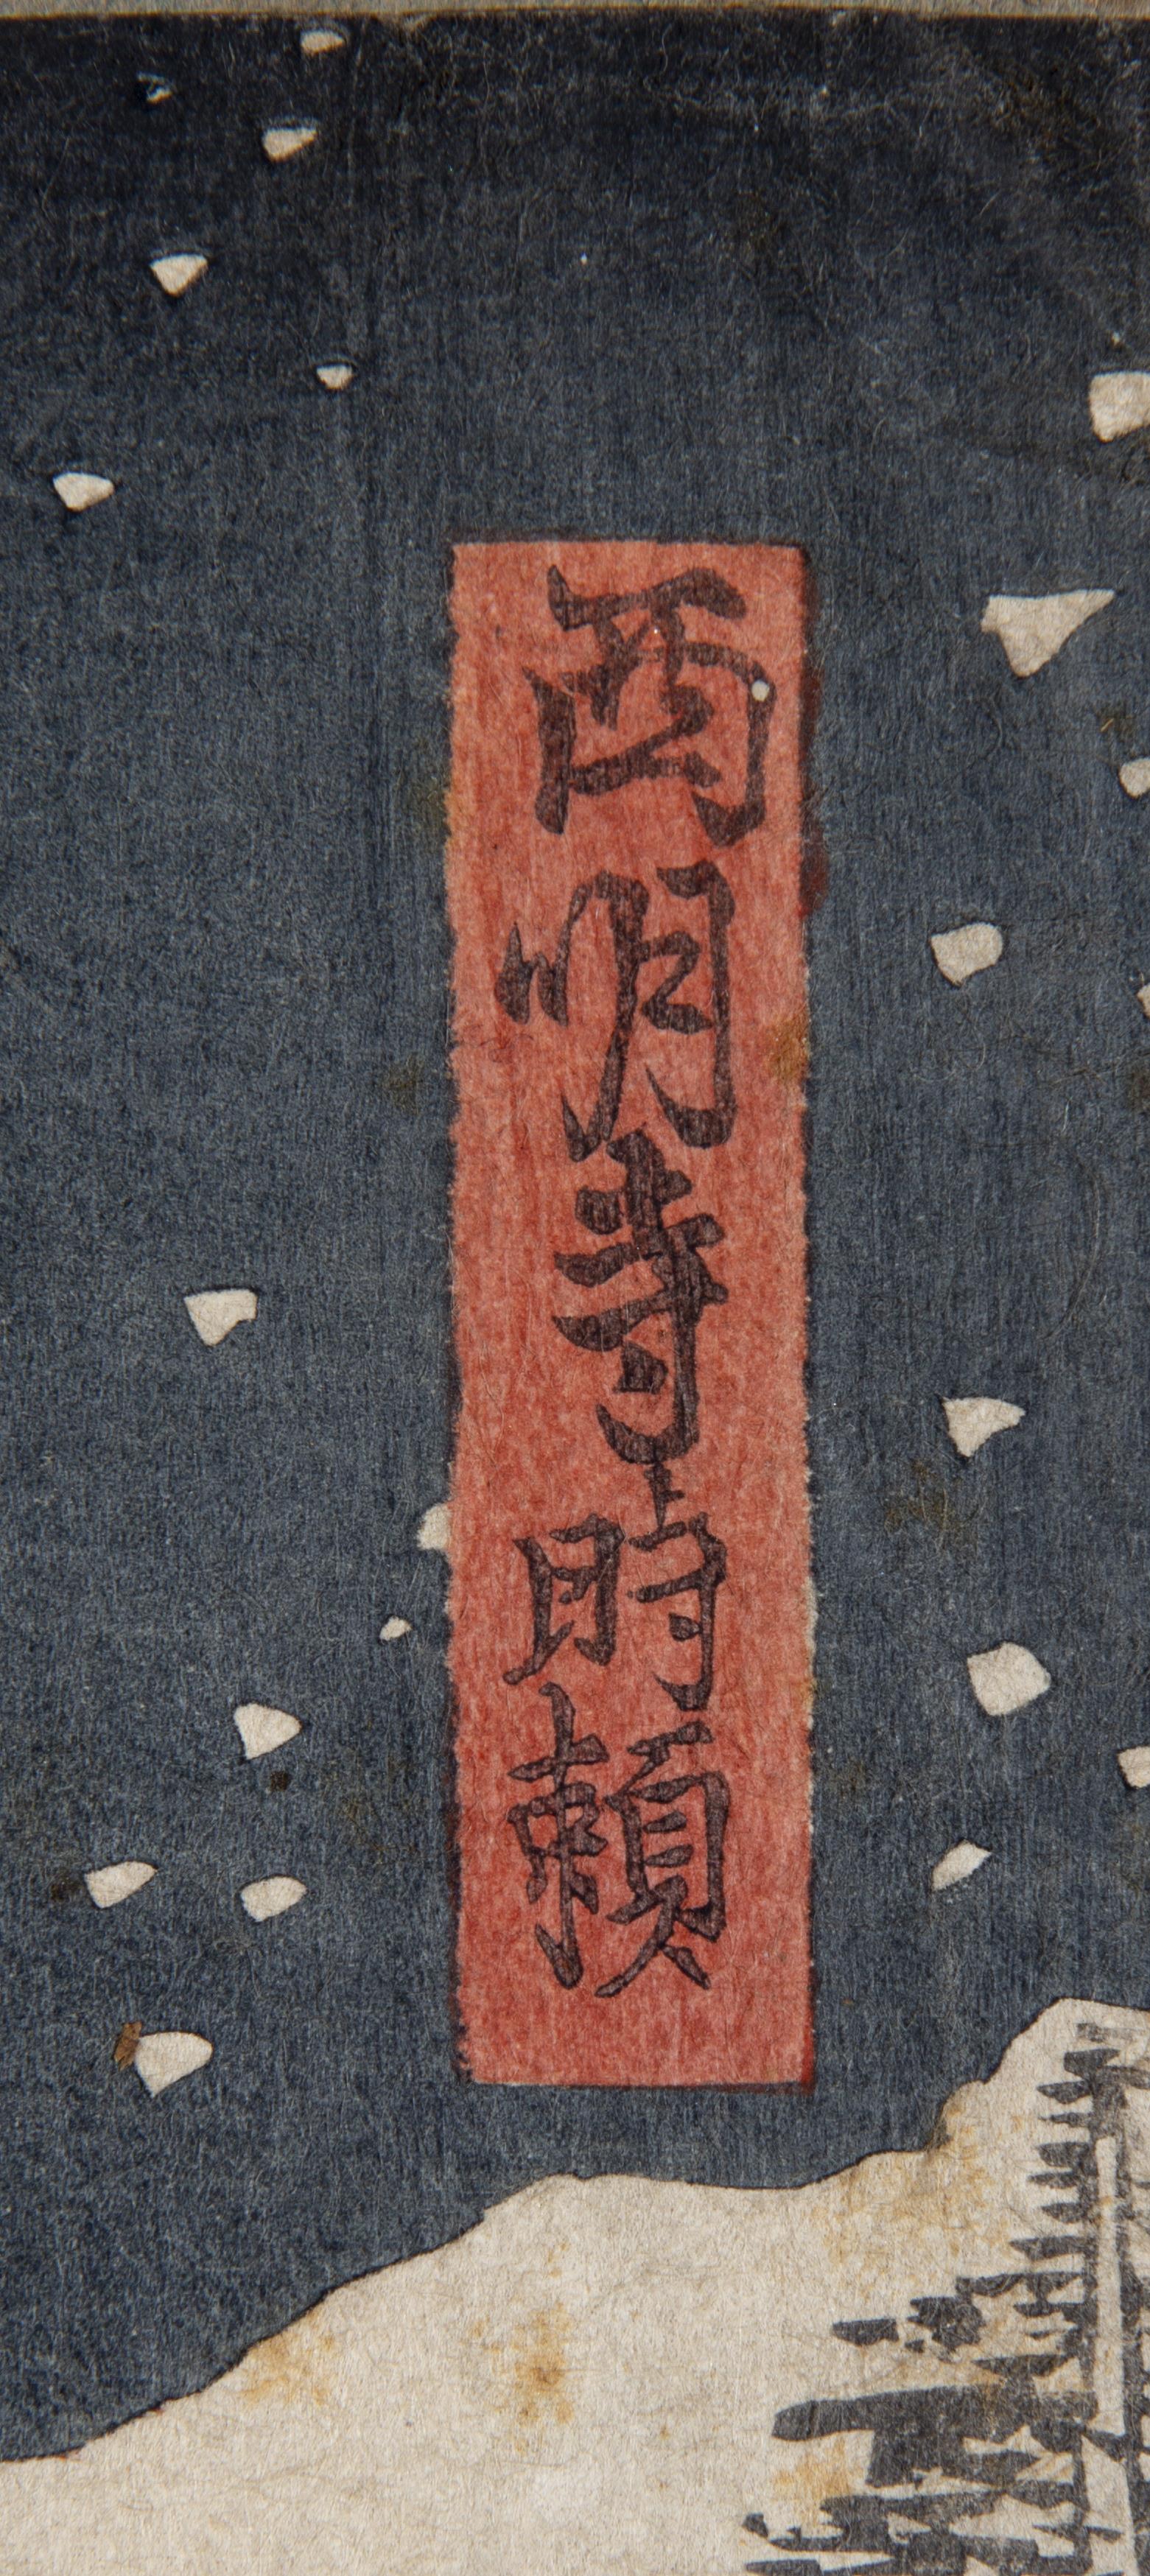 西明寺時頼